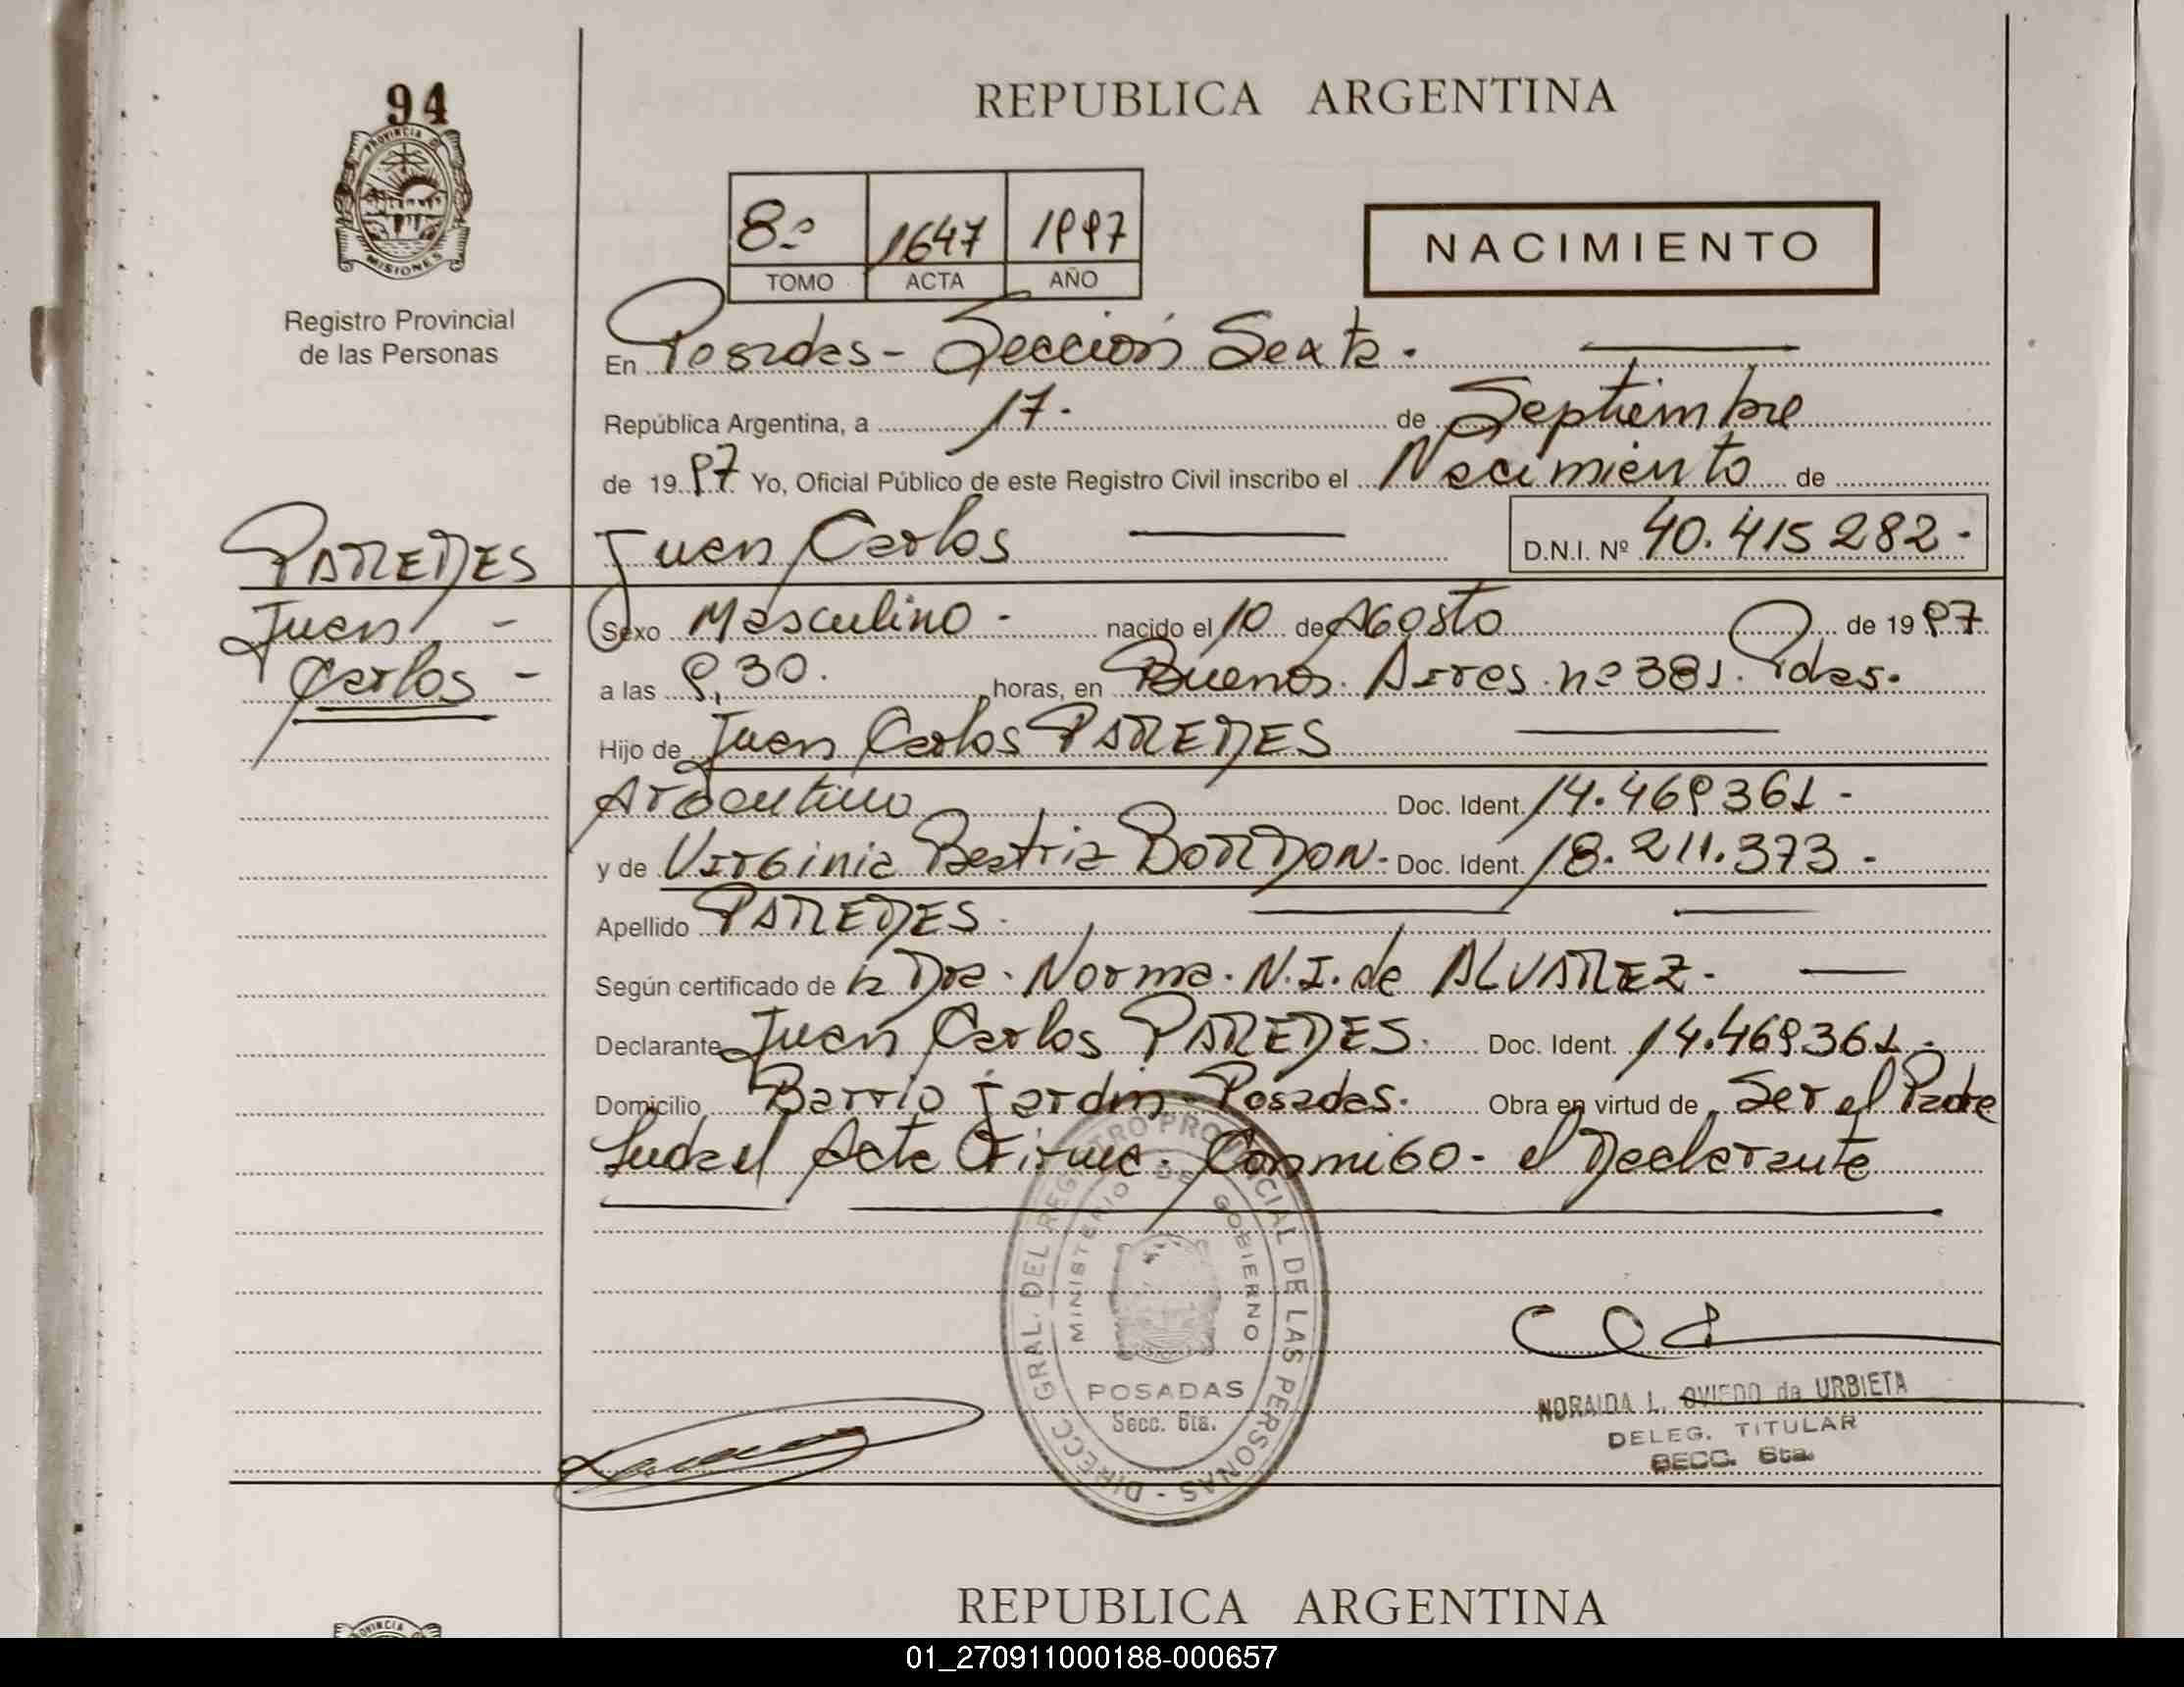 94
PROVINCIA DE
MISIONES
Registro Provincial
de las Personas
REPUBLICA ARGENTINA
8º 1647 1997
TOMO ACTA AÑO
NACIMIENTO
En Posadas - Sección Sexta.
República Argentina, a 17. de Septiembre
de 1997 Yo, Oficial Público de este Registro Civil inscribo el Nacimiento de
PAREDES
Juan -
Carlos -
Juan Carlos D.N.I. Nº 40.415282-
Sexo Masculino - nacido el 10 de Agosto de 1997
a las 9,30. horas, en Buenos Aires nº 381. Pdas.
Hijo de Juan Carlos PAREDES
Argentino Doc. Ident. 14.469361-
y de Virginia Beatriz BORDON- Doc. Ident. 18.211.373-
Apellido PAREDES.
Según certificado de la Dra. Norma. N.I. de ALVAREZ-
Declarante Juan Carlos PAREDES. Doc. Ident. 14.469361-
Domicilio Barrio Jardin - Posadas. Obra en virtud de Ser el Padre
Acta Firma. Conmigo - el Declarante
DIRECC GRAL. DEL REGISTRO PROVINCIAL DE LAS PERSONAS -
MINISTERIO DE GOBIERNO
POSADAS
Secc. 6ta.
NORAIDA L. OVIEDO de URBIETA
DELEG. TITULAR
SECC. 6ta.
REPUBLICA ARGENTINA
PROVINCIA
01_270911000188-000657